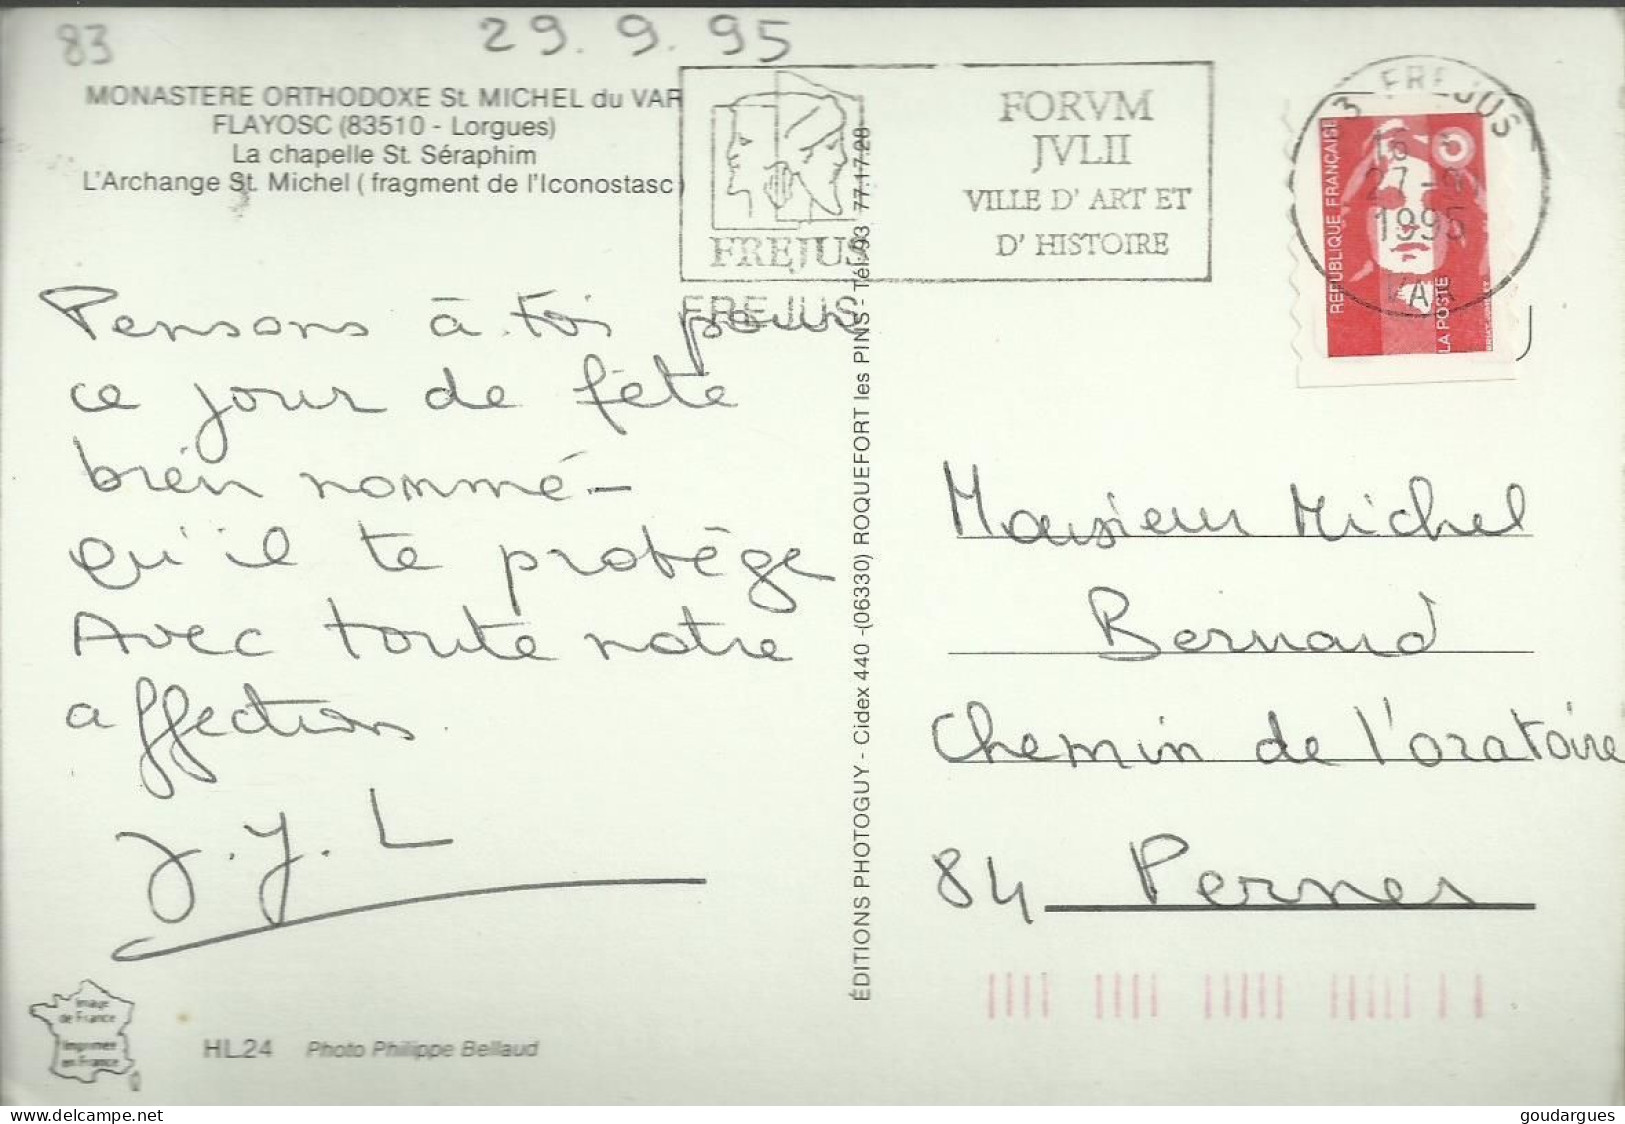 83
29.9.95
MONASTERE ORTHODOXE St. MICHEL du VAR
FLAYOSC (83510 - Lorgues)
La chapelle St. Séraphim
L'Archange St. Michel (fragment de l'Iconostasc)
FREJUS
FREJUS
FORVM
JVLII
VILLE D'ART ET
D'HISTOIRE
FREJUS
27
1995
VAR
REPUBLIQUE FRANÇAISE
LA POSTE
Pensons à toi pour
ce jour de fête
bien nommé -
qu'il te protège
Avec toute notre
affection.
J.Y.L
ÉDITIONS PHOTOGUY - Cidex 440 -(06330) ROQUEFORT les PINS - Tél. 93 77.17.28
Monsieur Michel
Bernard
Chemin de l'oratoire
84 Pernes
Image
de France
Imprimée
en France
HL24 Photo Philippe Bellaud
goudargues